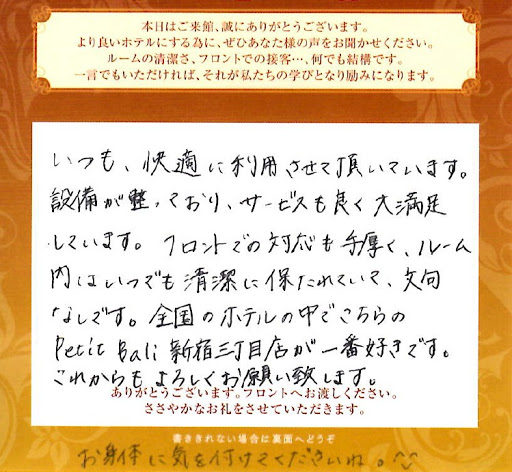 本日はご来館、誠にありがとうございます。
より良いホテルにする為に、ぜひあなた様の声をお聞かせください。
ルームの清潔さ、フロントでの接客…、何でも結構です。
一言でもいただければ、それが私たちの学びとなり励みになります。
いつも、快適に利用させて頂いています。
設備が整っており、サービスも良く大満足
しています。フロントでの対応も手厚く、ルーム
内はいつでも清潔に保たれていて、文句
なしです。全国のホテルの中でこちらの
Petit Bali 新宿三丁目店が一番好きです。
これからもよろしくお願い致します。
ありがとうございます。フロントへお渡しください。
ささやかなお礼をさせていただきます。
書ききれない場合は裏面へどうぞ
お身体に気を付けてくださいね。^^